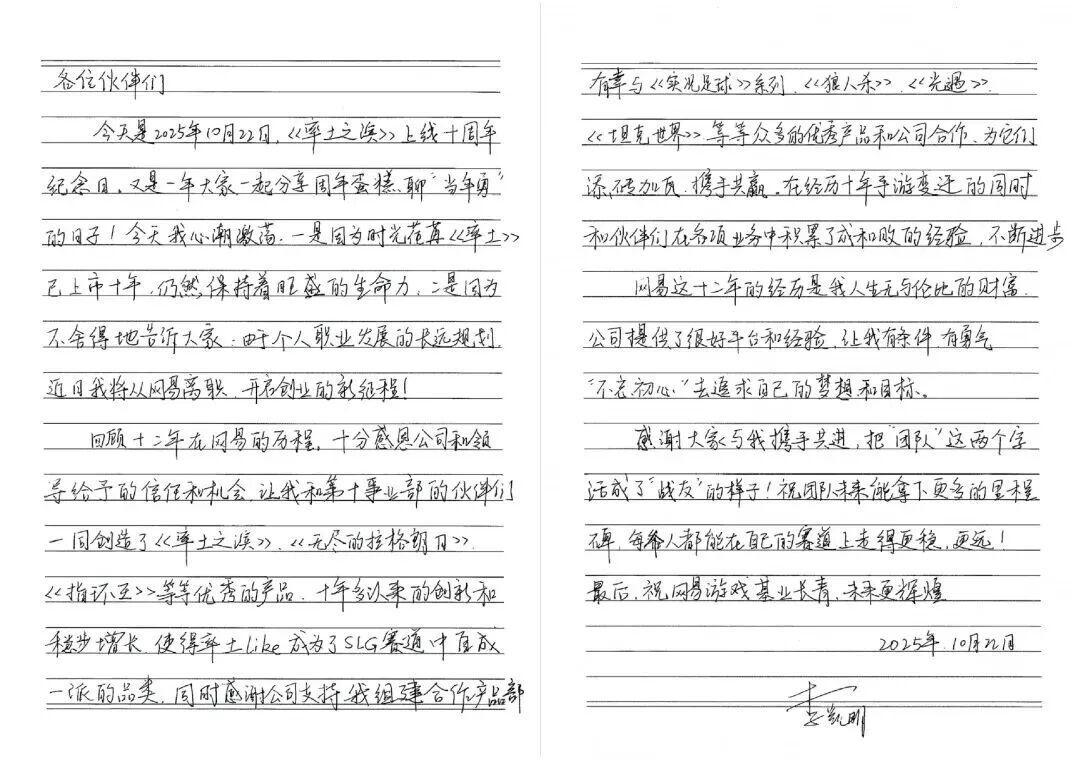 各位伙伴们
今天是2025年10月22日,《率土之滨》上线十周年
纪念日,又是一年大家一起分享周年蛋糕、聊“当年勇”
的日子!今天我心潮激荡,一是因为时光荏苒《率土》
已上市十年,仍然保持着旺盛的生命力,二是因为
不舍得地告诉大家:由于个人职业发展的长远规划,
近日我将从网易离职,开启创业的新征程!
回顾十二年在网易的历程,十分感恩公司和领
导给予的信任和机会,让我和第十事业部的伙伴们
一同创造了《率土之滨》、《无尽的拉格朗日》、
《指环王》等等优秀的产品,十年多以来的创新和
稳步增长,使得率土like成为了SLG赛道中自成
一派的品类,同时感谢公司支持我组建合作产品部
有幸与《实况足球》系列、《狼人杀》、《光遇》、
《坦克世界》等等众多的优秀产品和公司合作,为它们
添砖加瓦,携手共赢。在经历十年手游变迁的同时
和伙伴们在各项业务中积累了成和败的经验,不断进步
网易这十二年的经历是我人生无与伦比的财富,
公司提供了很好平台和经验,让我有条件,有勇气
“不忘初心”去追求自己的梦想和目标。
感谢大家与我携手共进,把“团队”这两个字
活成了“战友”的样子!祝团队未来能拿下更多的里程
碑,每个人都能在自己的赛道上走得更稳,更远!
最后,祝网易游戏基业长青,未来更辉煌
2025年10月22日
李凯明